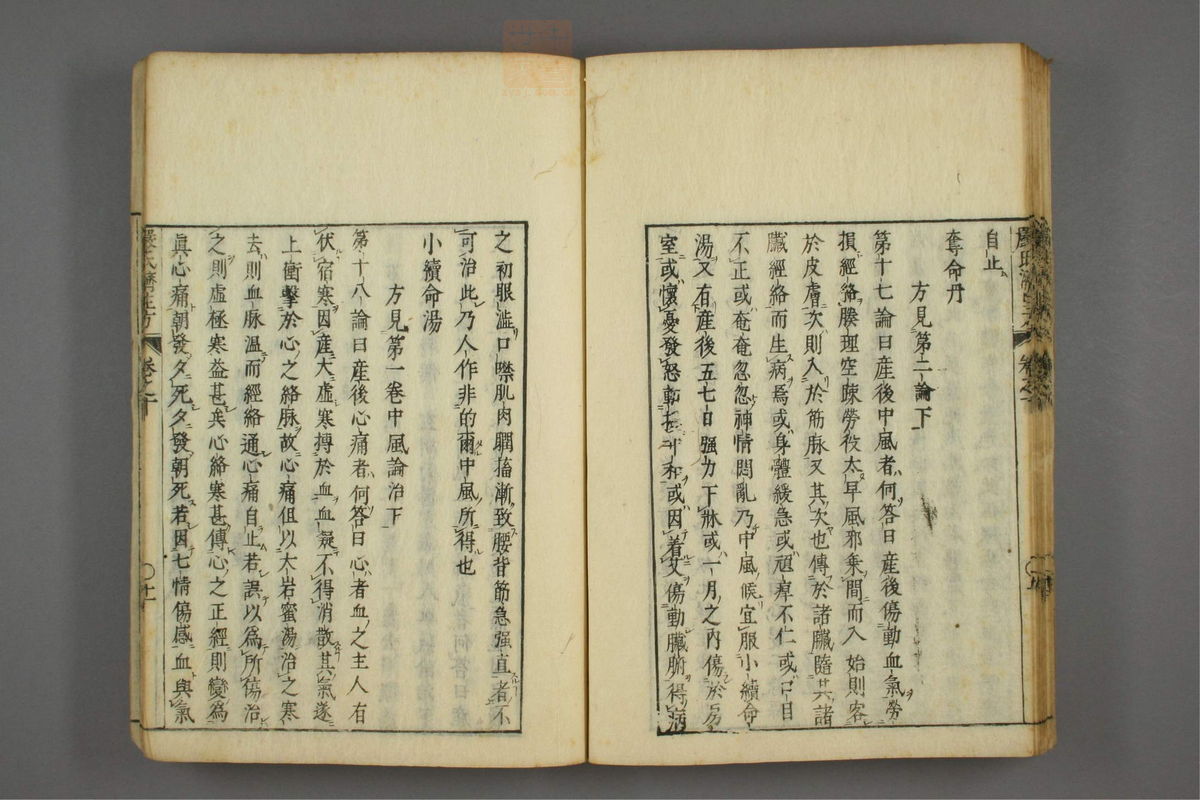 自止
奪命丹
方見第二論下
第十七論曰產後中風者何答曰產後傷動血氣勞
損經絡腠理空疎勞役太早風邪乘間而入始則客
於皮膚次則入於筋脉又其次也傳於諸臟隨其諸
臟經絡而生病焉或身體緩急或頑痺不仁或口目
不正或奄奄忽忽神情悶亂乃中風候宜服小續命
湯又有產後五七日强力下牀或一月之內傷於房
室或懷憂發怒動 和或因着艾傷動臟腑得病
之初眼澁口噤肌肉瞤搐漸致腰背筋急强直者不
可治此乃人作非的爾中風所得也
小續命湯
方見第一卷中風論治下
第十八論曰產後心痛者何答曰心者血之主人有
伏宿寒因產大虛寒搏於血血凝不得消散其氣遂
上衝擊於心之絡脉故心痛但以大岩蜜湯治之寒
去則血脉溫而經絡通心痛自止若誤以為所傷治
之則虛極寒益甚矣心絡寒甚傳心之正經則變為
眞心痛朝發夕死夕發朝死若因七情傷感血與氣
嚴氏濟生方 卷之